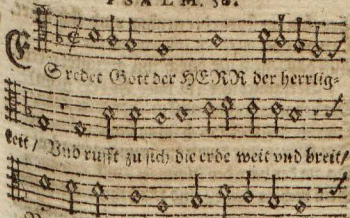 PSALM. 50.
ES redet Gott der HERR der herrlig-
keit / Vnd rufft zu sich die erde weit vnd breit /